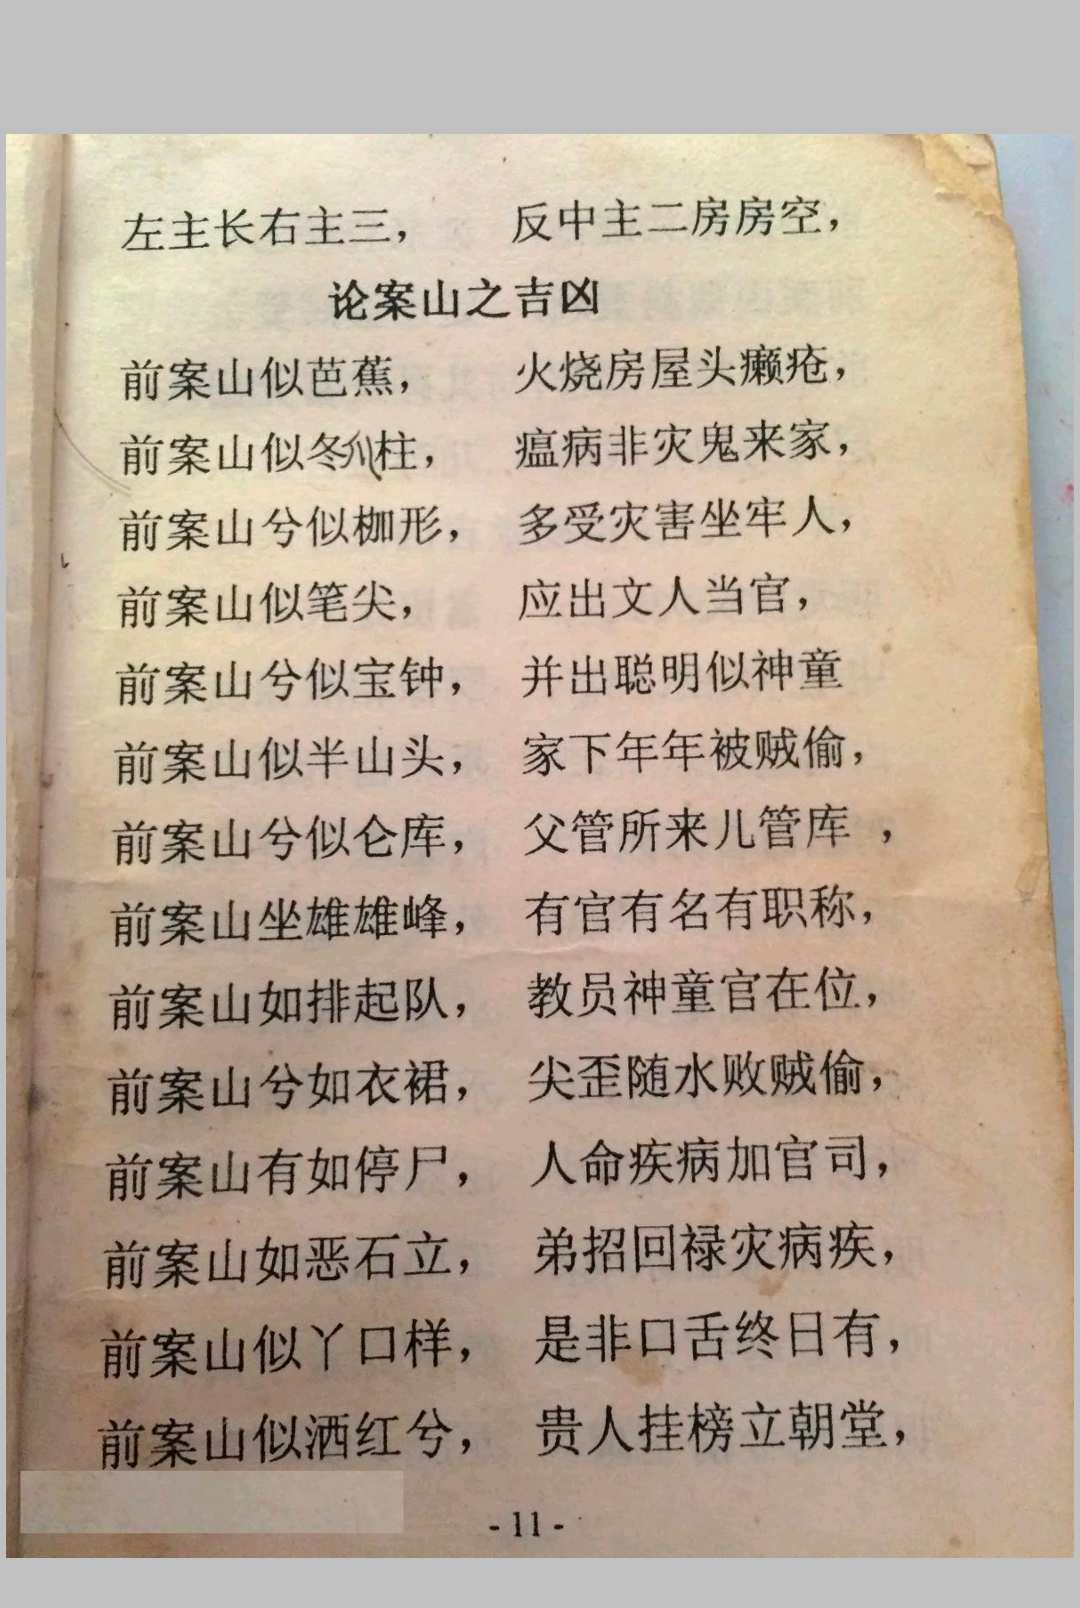 左主长右主三， 反中主二房房空，
论案山之吉凶
前案山似芭蕉， 火烧房屋头癞疮，
前案山似冬柱， 瘟病非灾鬼来家，
前案山兮似枷形， 多受灾害坐牢人，
前案山似笔尖， 应出文人当官，
前案山兮似宝钟， 并出聪明似神童
前案山似半山头， 家下年年被贼偷，
前案山兮似仑库， 父管所来儿管库 ，
前案山坐雄雄峰， 有官有名有职称，
前案山如排起队， 教员神童官在位，
前案山兮如衣裙， 尖歪随水败贼偷，
前案山有如停尸， 人命疾病加官司，
前案山如恶石立， 弟招回禄灾病疾，
前案山似丫口样， 是非口舌终日有，
前案山似洒红兮， 贵人挂榜立朝堂，
- 11 -